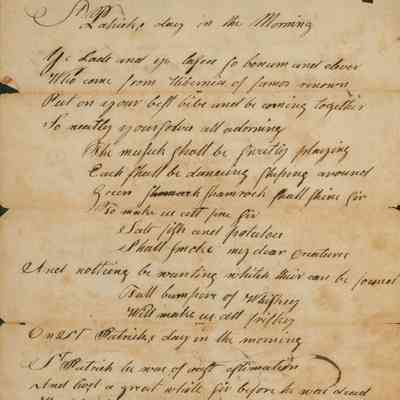 St P
Patricks day in the Morning
Ye Lads and ye lasses so bonum and clever
Who come from Hibernia of famos renown
Put on your best bibs and be coming together
So neatly yourselves all adorning
The musick shall be sweetly playing
Each shall be dancing skiping around
Green Shamrock shall shine sir
To make us all fine sir
Salt fish and potatoes
Shall smoke my dear creatures
And nothing be wanting which their can be found
Full bumpers of Whiskey
Will make us all friskey
On St Patricks day in the morning
St Patrick he was of estimation
And lived a great while sir before he was dead